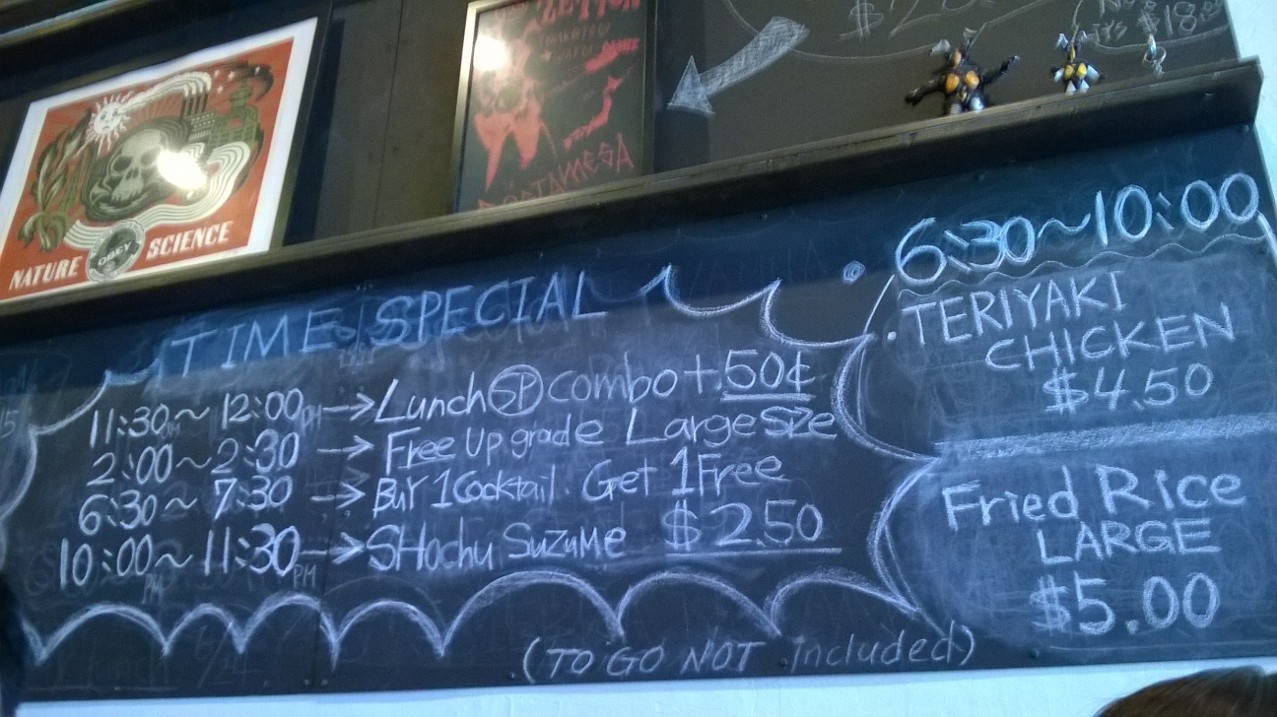 ZETTON
COSTAMESA
IT'S $18
NATURE OBEY SCIENCE
TIME SPECIAL
11:30~12:00PM→Lunch SP combo + 50¢
2:00~2:30 → Free Upgrade Large Size
6:30~7:30 → BUY 1 Cocktail. Get 1 Free
10:00PM~11:30PM→SHochu SuzuMe $2.50
(TO GO NOT included)
6:30~10:00
.TERIYAKI
CHICKEN
$4.50
Fried Rice
LARGE
$5.00